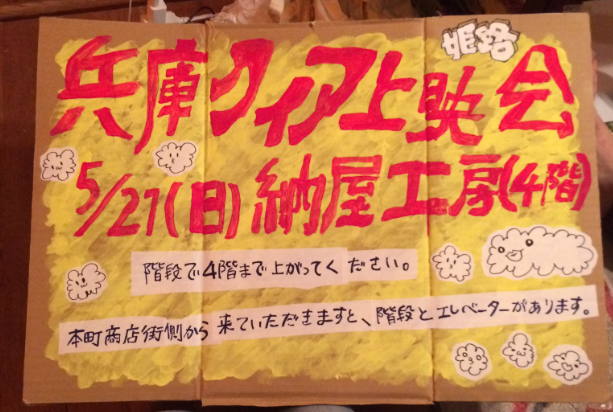 姫路
兵庫クィア上映会
5/27(日)納屋工房(4階)
階段で4階まで上がってください。
本町商店街側から来ていただきますと、階段とエレベーターがあります。